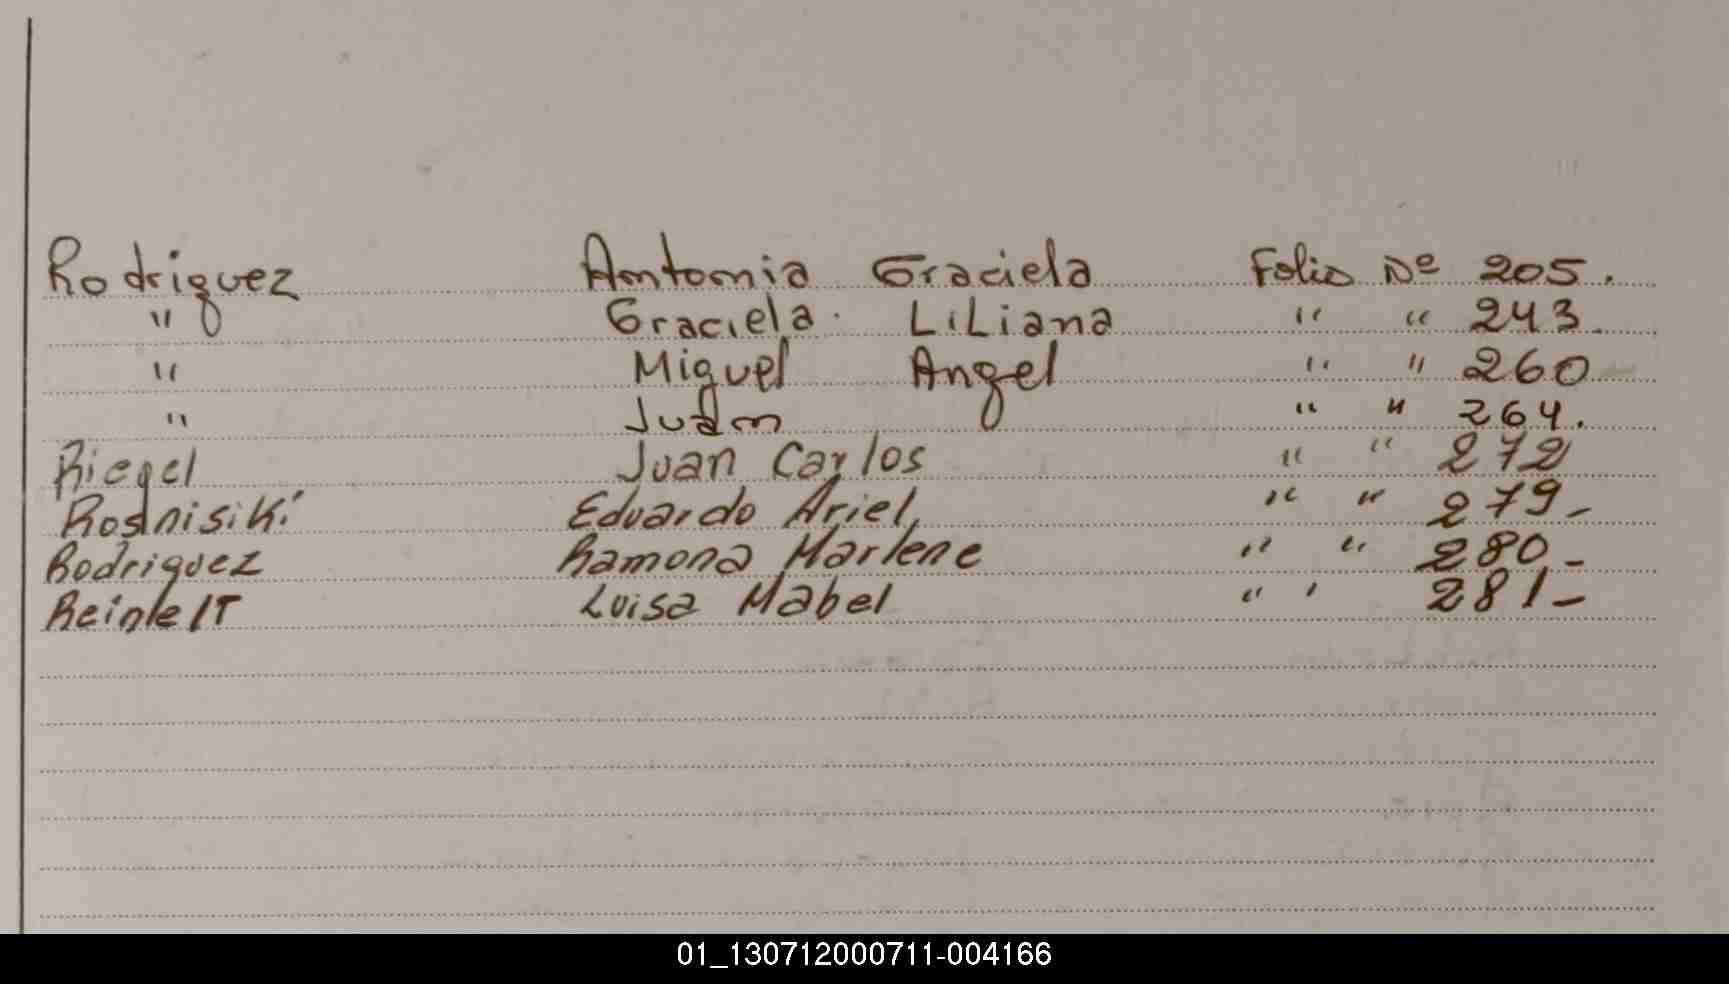 Rodriguez Antonia Graciela Folio Nº 205.
" Graciela. LiLiana " " 243.
" Miguel Angel " " 260
" Juan " " 264.
Riegel Juan Carlos " " 272
Rosnisiki Eduardo Ariel, " " 279-
Rodriguez Ramona Marlene " " 280-
ReinleIT Luisa Mabel " ' 281-
01_130712000711-004166